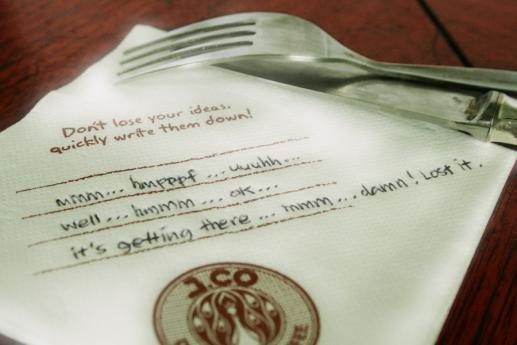 Don't lose your ideas,
quickly write them down!
mmm... hmpppf ... uuuhh...
well ... hmmm ... ok...
it's getting there ... mmm... damn! Lost it.
J.CO